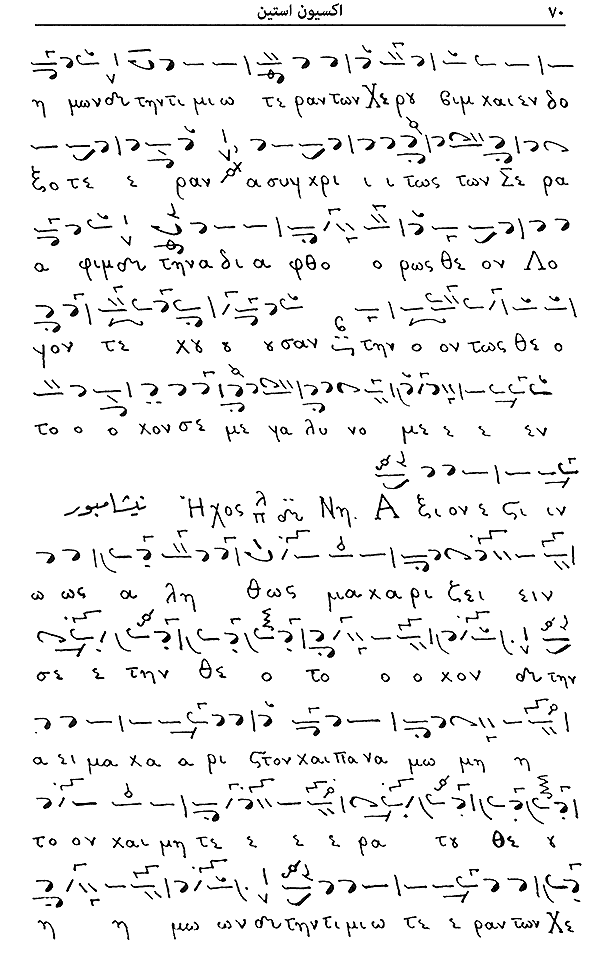 ٧٠ اكسيون استين
η μων ȣ την τι μι ω τε ραν των Χε ρȣ βιμ και εν δο
ξο τε ε ραν α συγ κρι ι ι τως των Σε ρα
α φιμ ȣ την α δι α φθο ο ρως θε ον Λο
γον τε κȣ ȣ ȣ σαν την ο ον τως θε ο
το ο ο κον σε με γα λυ νο με ε ε εν
نيشامبور Ἦχος λ π ȣ Νη. Α ξι ον ε στι ιν
ω ως α λη θως μα κα ρι ζει ειν
σε ε την θε ο το ο ο κον ȣ την
α ει μα κα α ρι στον και πα να μω μη η
το ον και μη τε ε ε ε ρα τȣ θε ȣ
η η μω ων ȣ την τι μι ω τε ε ραν των Χε